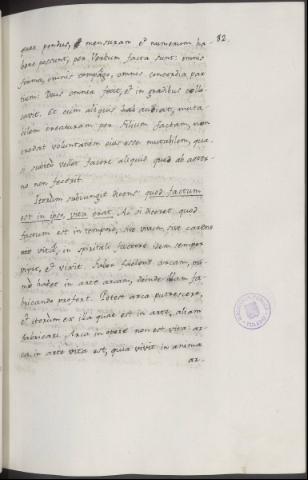 quae pondus, & mensuram et numerum ha- 82.
bere possunt, per Verbum facta sunt: omnis
forma, omnis compago, omnis concordia par
tium: Deus omnia fecit, et in gradibus collo
cavit. Et cum aliquis hab audiat, muta
bilem creaturam per filium factam, non
credat voluntatem eius esse mutabilem, qua
si subito vellet facere aliquid quod ab aeter-
no non fecerit.
Iterum subiungit dicens quod factum
est in ipso, vita erat. Ac si diceret quod
factum est in tempore, sive vivum, sive carens
vita, in spirituali factore idem semper
vivit, et vixit. Faber faciens arcam, pri
mò habet in arte arcam, deinde illam fa-
bricando profert. Potest arca putrescere,
et iterum ex illa quae est in arte, aliam
fabricari. Arca in opere non est vita: ar
ca in arte vita est, quia vivit in anima
ar-